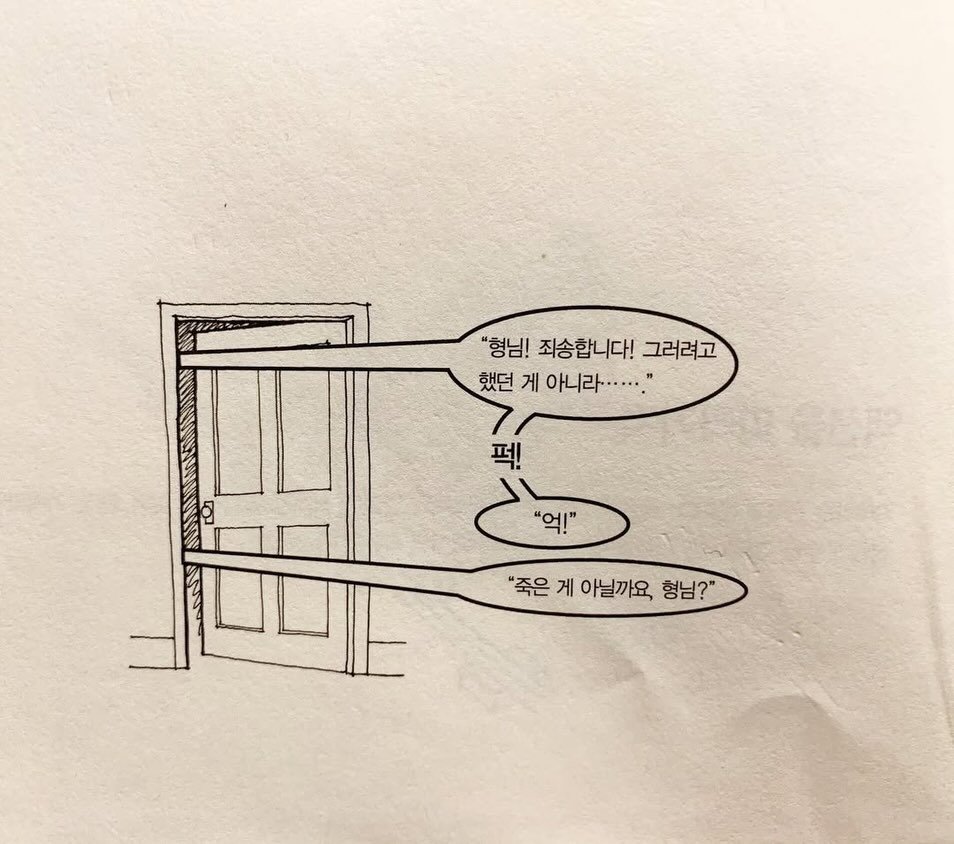 “형님! 죄송합니다! 그러려고
했던 게 아니라…….”
퍽!
“억!”
“죽은 게 아닐까요, 형님?”